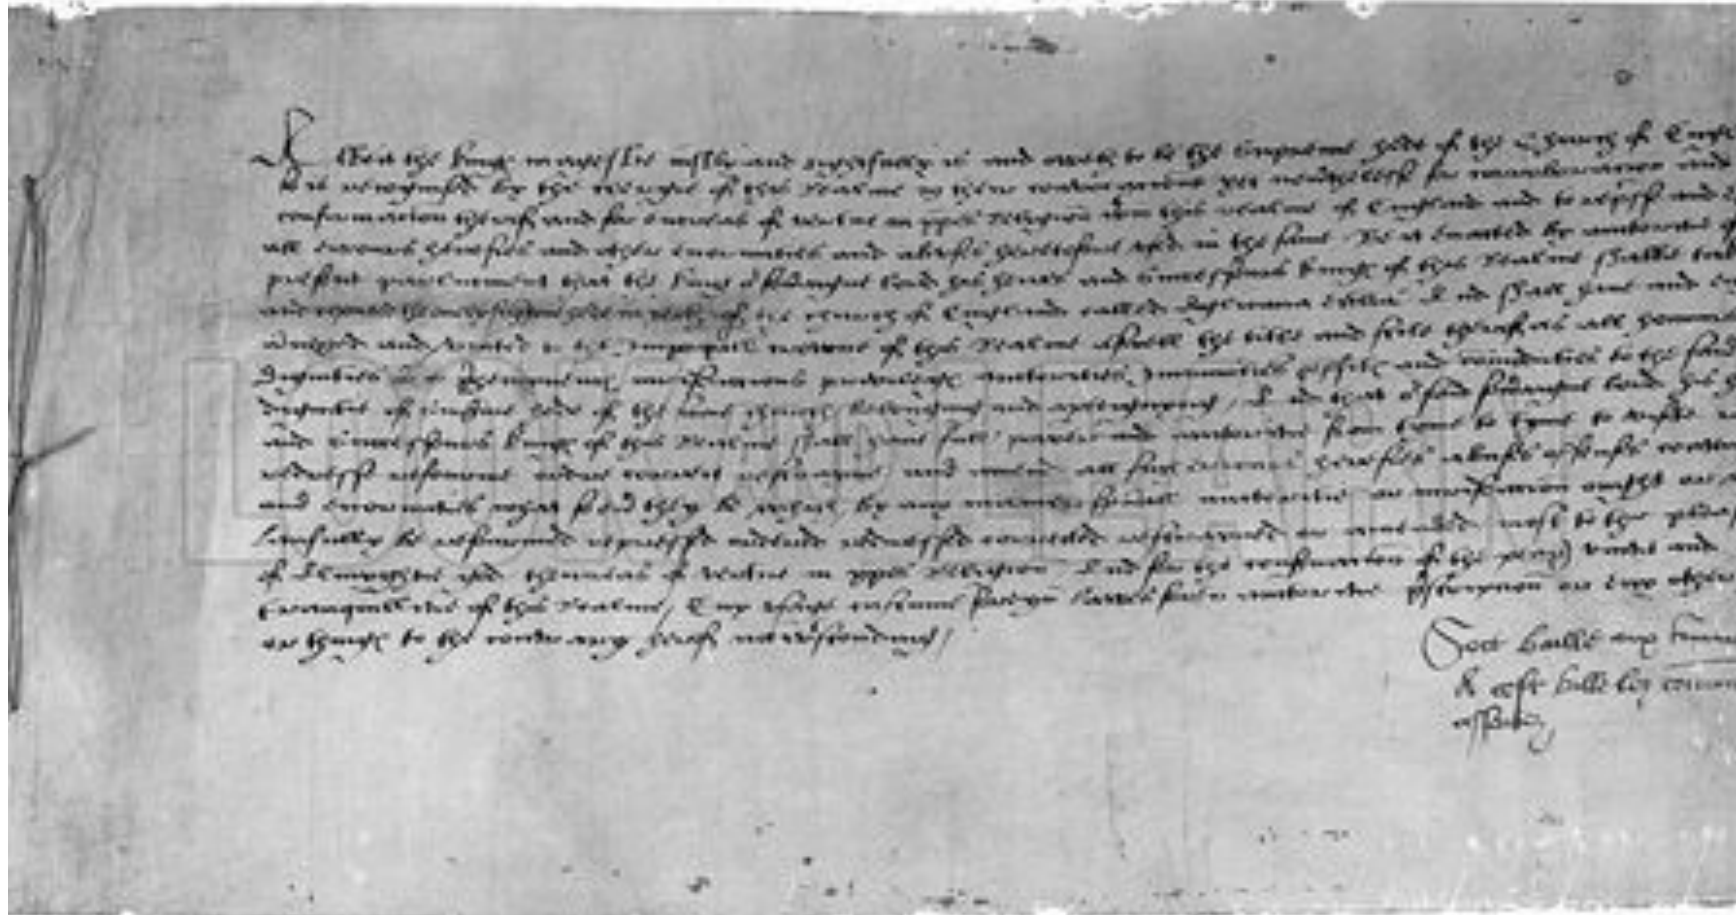 Albeit the kynges magestie justly and rightfully is and oweth to be the supreme hede of the Churche of Engl
so is recognysed by the clergie of this Realme in theyr convocacions yet neverthelesse for corroboracion and
confirmacion therof and for encreas of vertue in Cristis Religion within this realme of England and to represse and
all errours heresies and other enormities and abuses heretofore used in the same Be it enacted by auctorite of
present parliament that the kyng our soveraigne lorde his heires and successours kynges of this Realme shalbe
and reputed the onely supreme hede in erthe of the churche of England called Anglicana Ecclesia And shall have and
annexed and unyted to the Imperyall crowne of this Realme aswell the title and stile therof as all
Dignities prehemynences jurisdiccions privileges auctorities ymmunities profites and commodities to the said
dignitie of supreme hede of the same churche belongyng and apperteynyng / And that our said soveraigne lorde his
and successours kynges of this Realme shall have full power and auctorite from tyme to tyme to visite
redresse reforme ordre correct restrayne and amend all suche errours heresies abuses offences
and enormities what so ever they be which by any maner spirituall auctoritie or jurisdiccion ought or
lawfully be reformed repressed ordred redressed corrected restrayned or amended most to the
of Almyghtie god thencreas of vertue in Cristis Religion And for the conservacion of the peace unitie and
tranquillitie of this Realme / Any usage custume foreyn lawes foreyn auctoritie prescripcion or any other
or thinges to the contrary hereof notwithstondyng /
Soit baille aux
A ceste bille les
assentuz